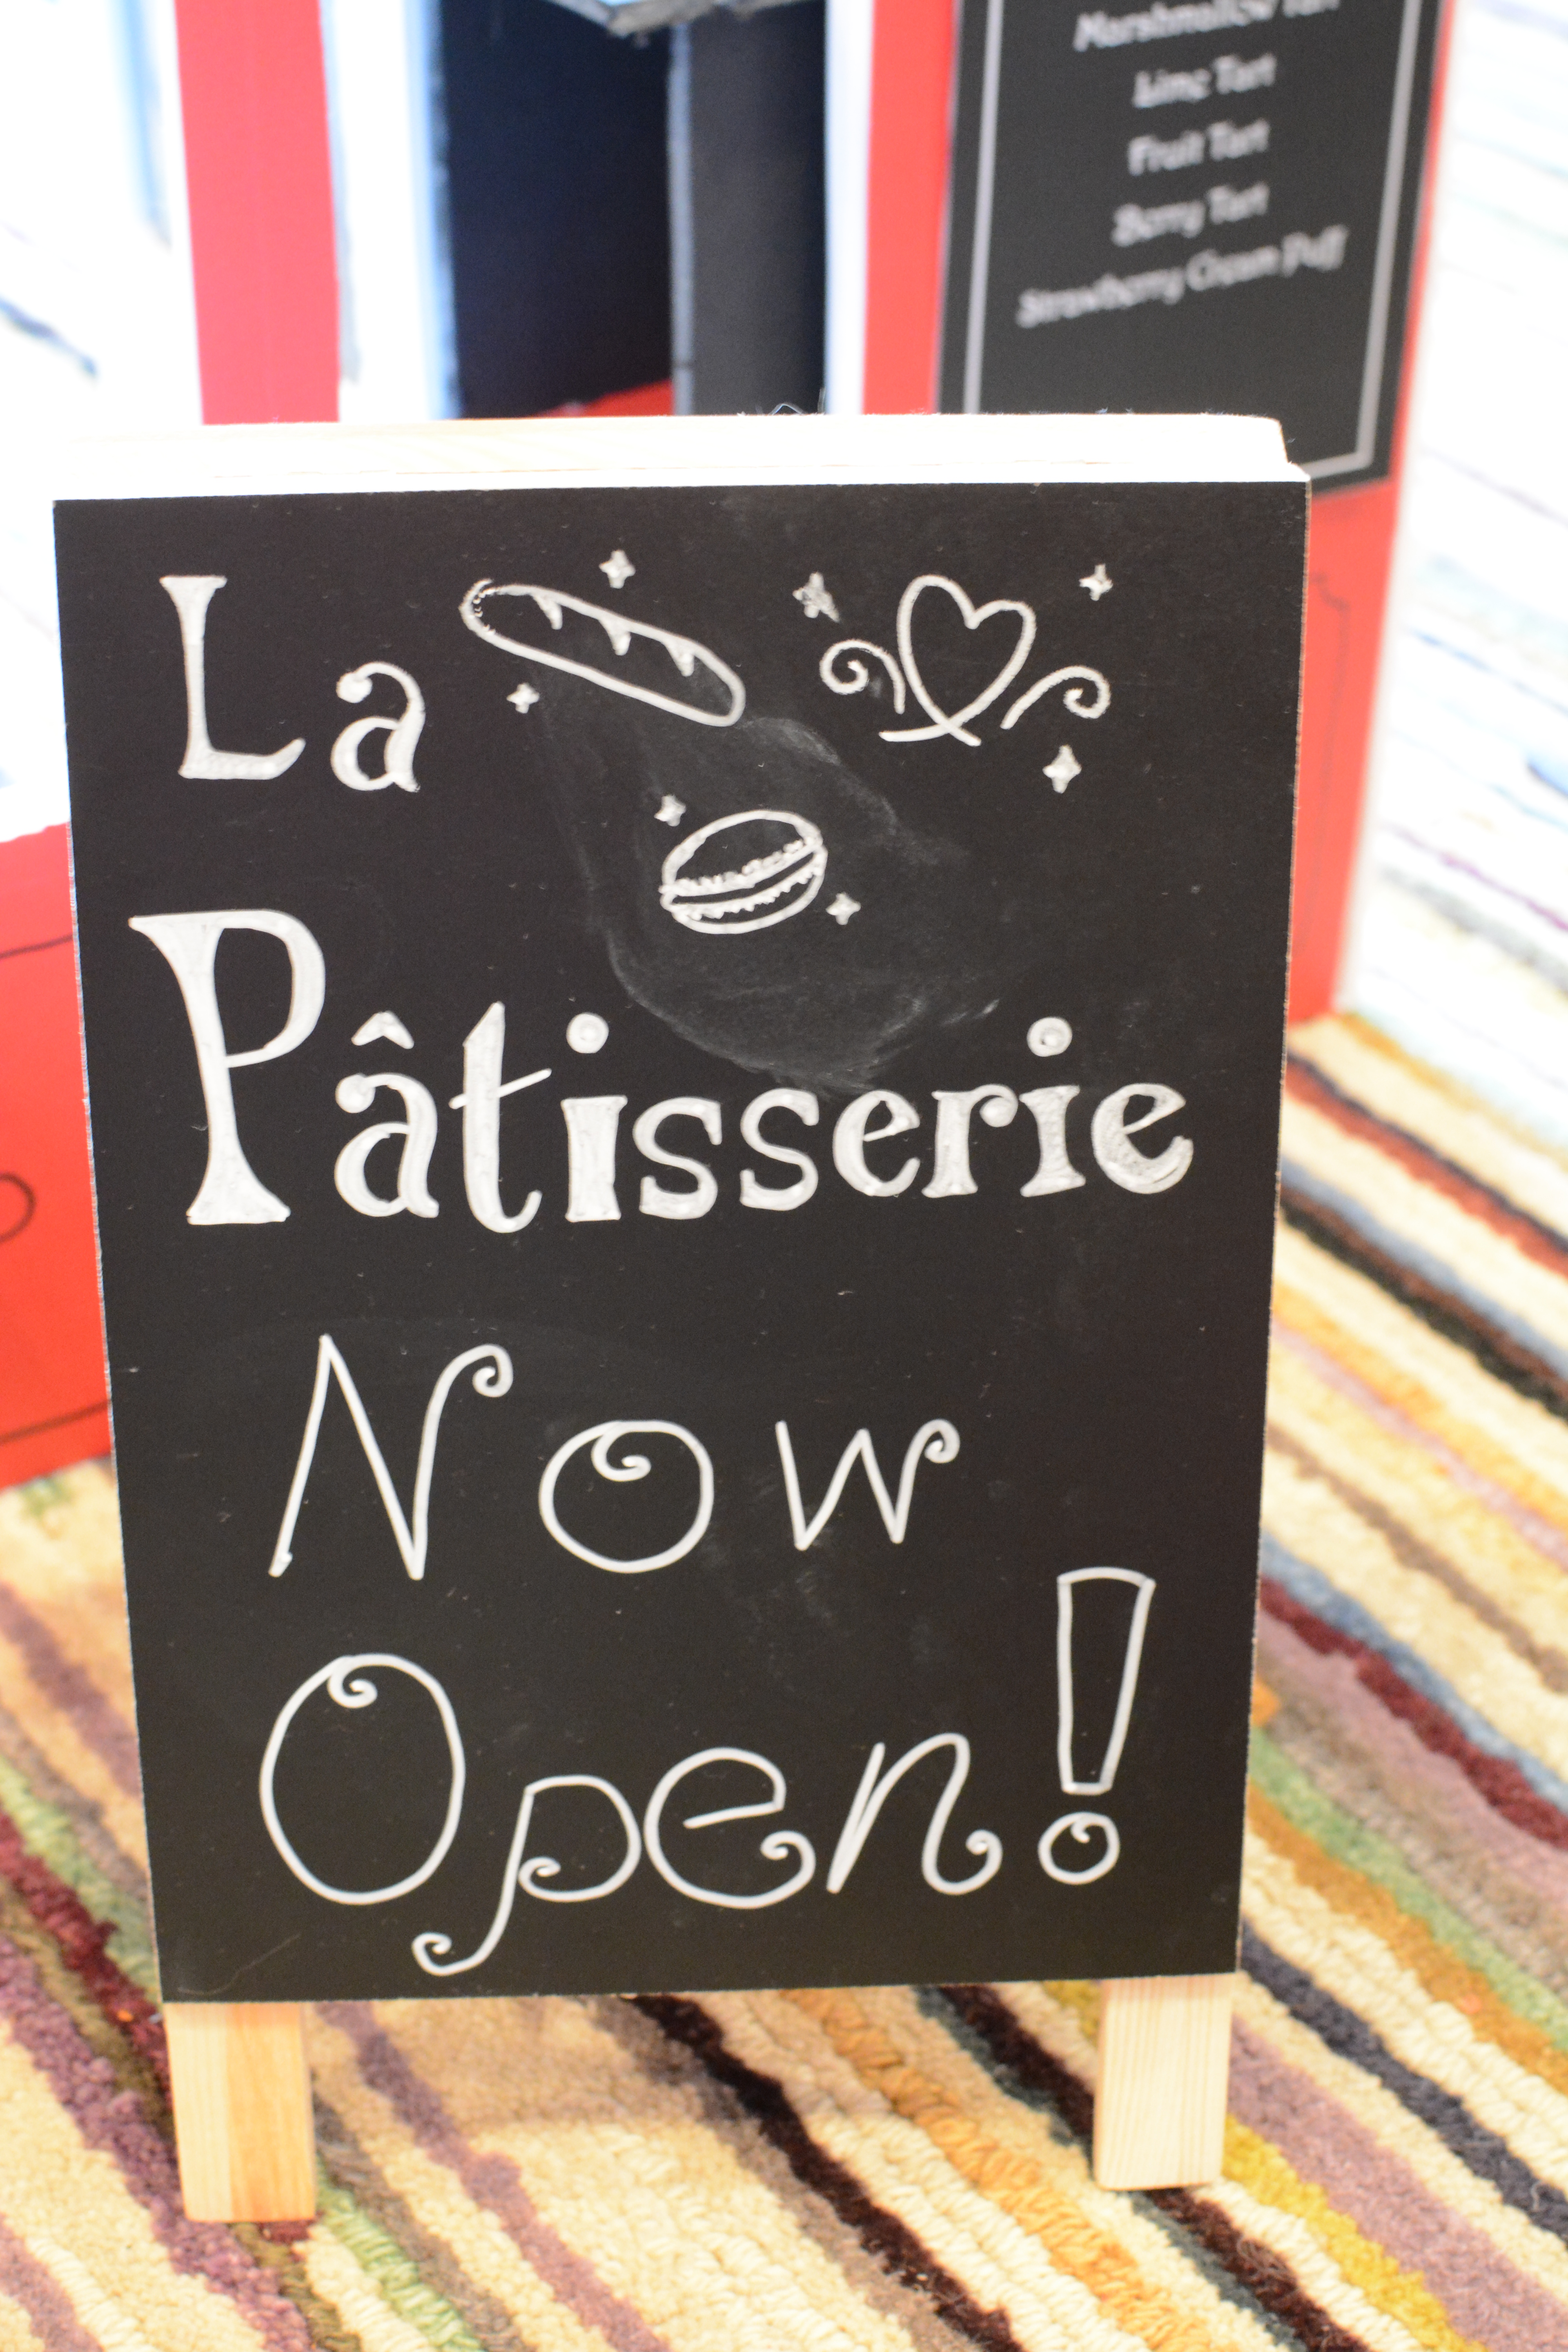 Marshmallow Tart
Lime Tart
Fruit Tart
Berry Tart
Strawberry Cream Puff
La
Pâtisserie
Now
Open!